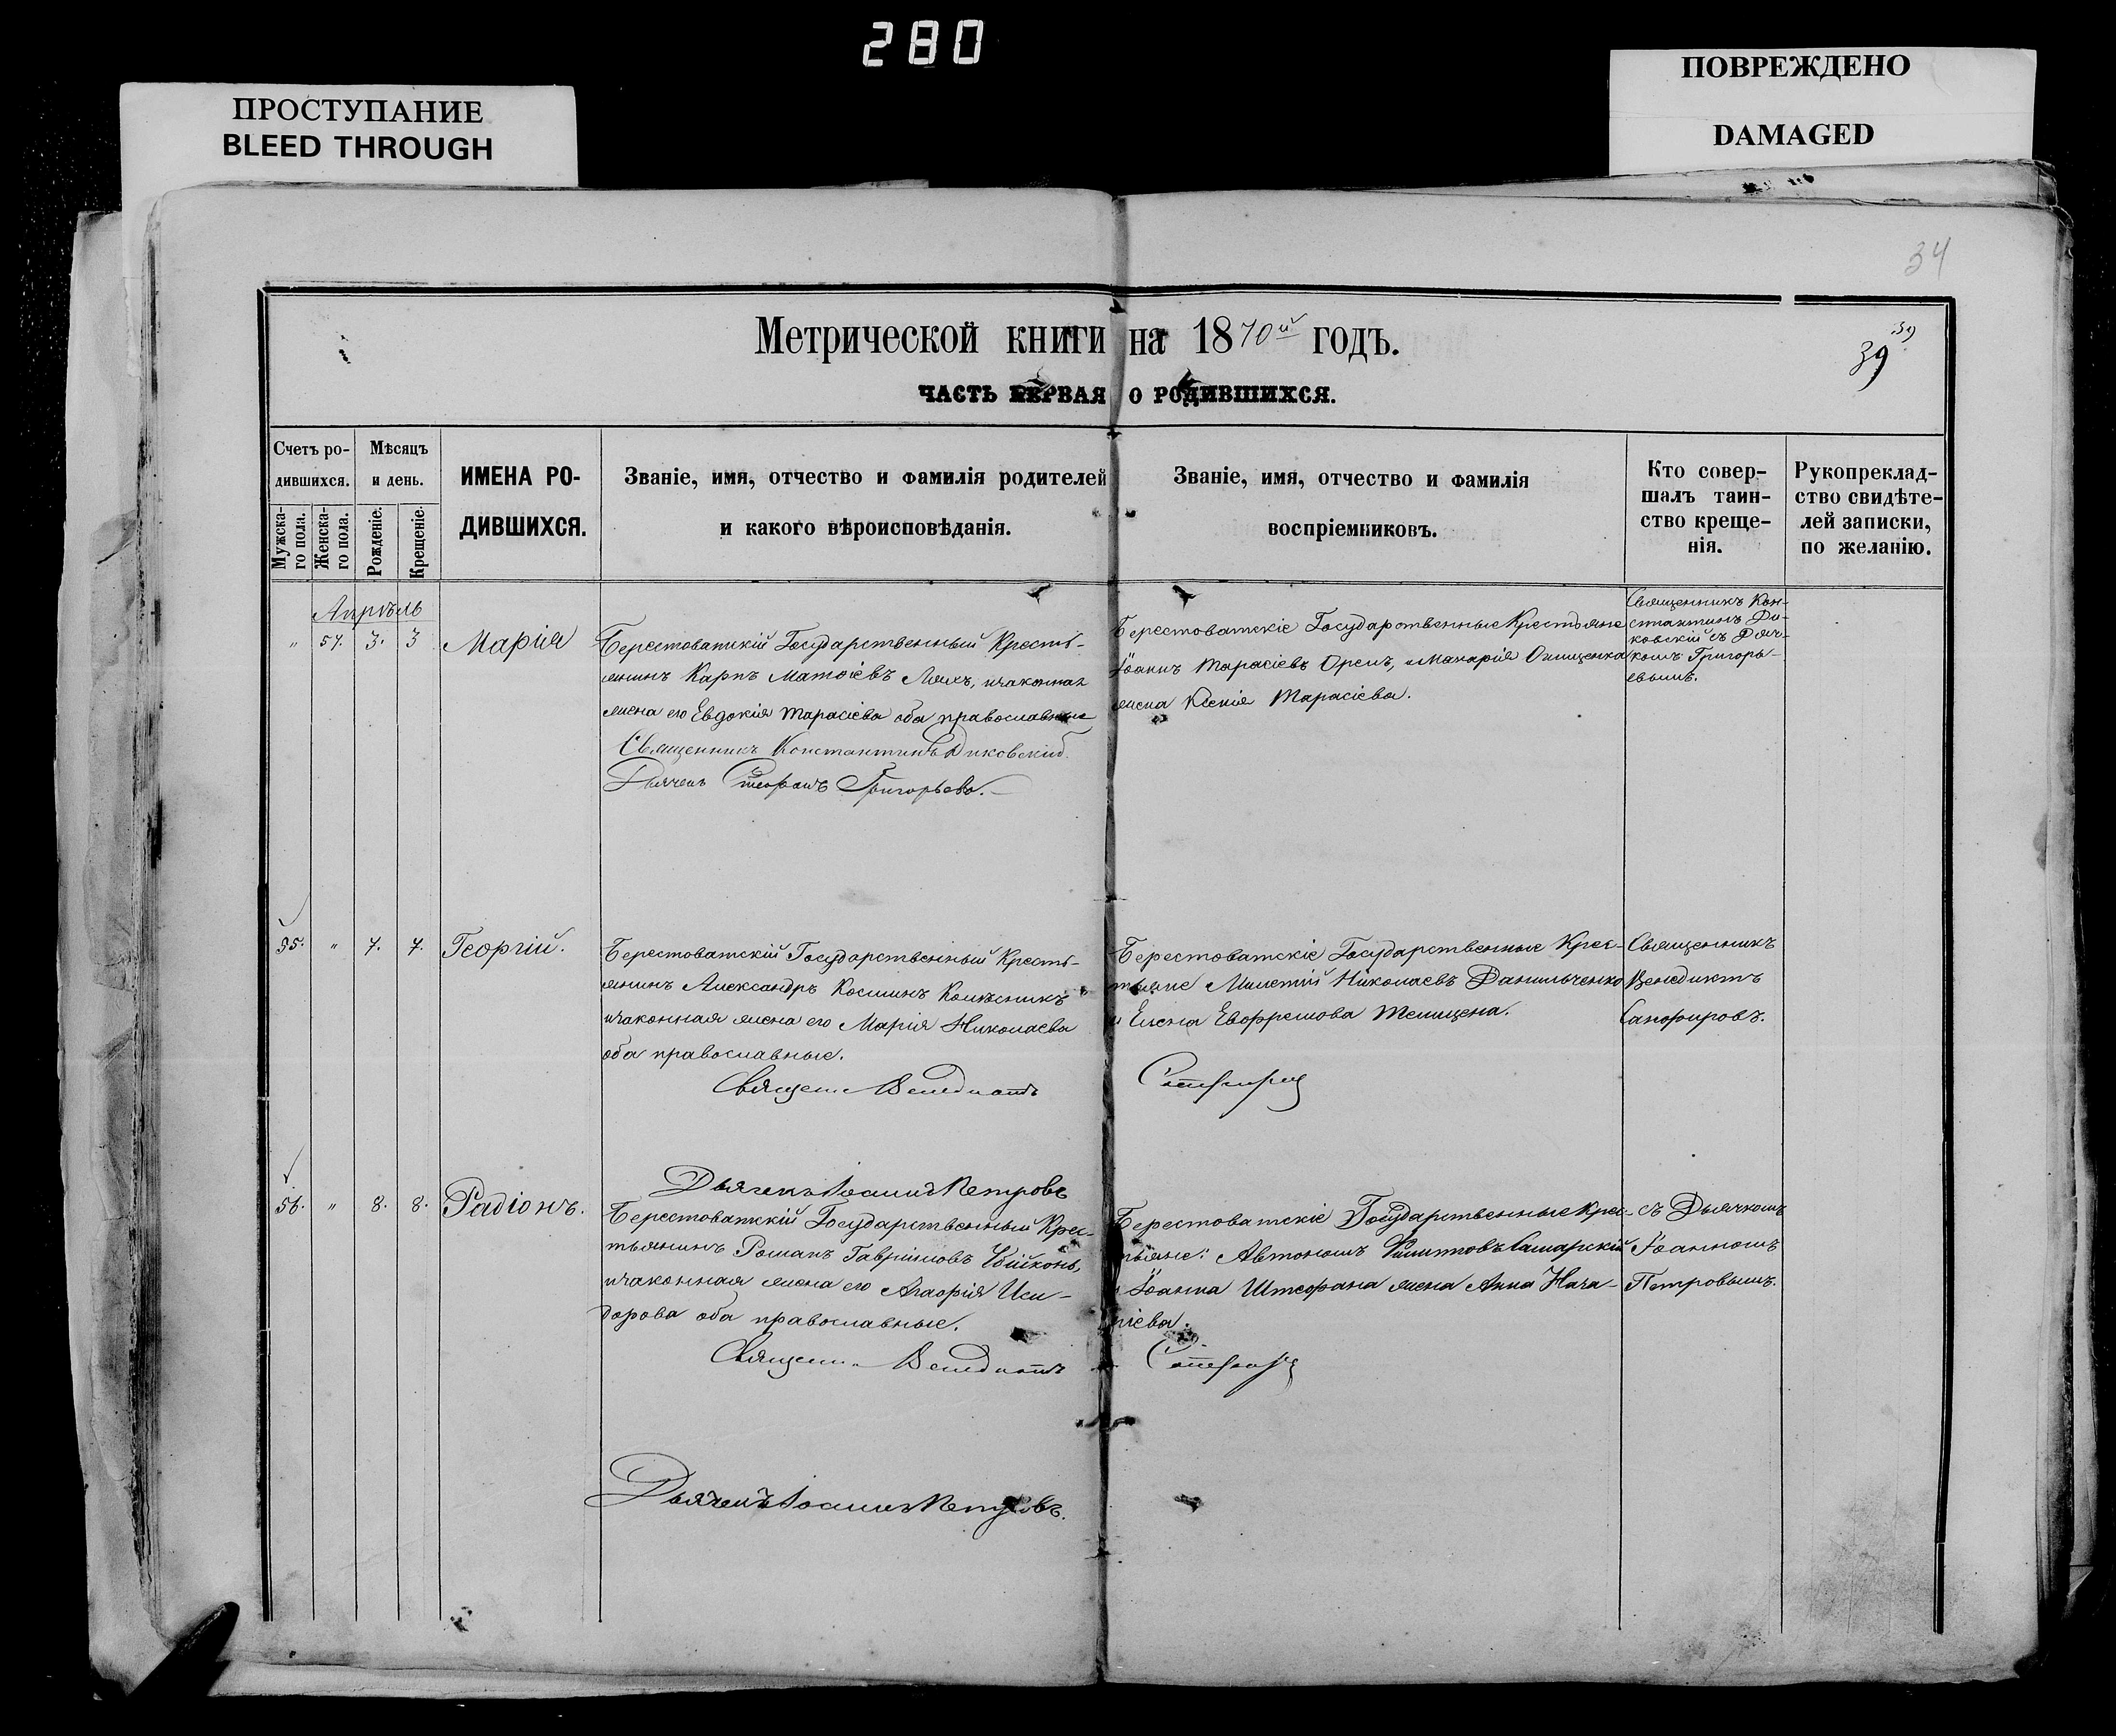 280
ПРОСТУПАНИЕ
BLEED THROUGH
ПОВРЕЖДЕНО
DAMAGED
34
Метрической книги на 1870й годъ.
39
39
ЧАСТЬ ПЕРВАЯ О РОДИВШИХСЯ.
Счетъ ро-
дившихся.
Мужска-
го пола.
Женска-
го пола.
Мѣсяцъ
и день.
Рожденіе.
Крещеніе.
ИМЕНА РО-
ДИВШИХСЯ.
Званіе, имя, отчество и фамилія родителей
и какого вѣроисповѣданія.
Званіе, имя, отчество и фамилія
воспріемниковъ.
Кто совер-
шалъ таин-
ство креще-
нія.
Рукоприклад-
ство свидѣте-
лей записки,
по желанію.
Апрѣль
" 57. 3. 3 Марія
Берестоватскій Государственный Кресть-
янинъ Карпъ Матѳіевъ Ляхъ, изаконная
жена его Евдокія Тарасіева оба православные
Священникъ Константинъ Диковскій
Дьячекъ Стефанъ Григорьевъ.
Берестоватскіе Государственные Крестьяне
Іоаннъ Тарасіевъ Орелъ, и Макарія Онищенка
жена Ксенія Тарасіева.
Священникъ Кон-
стантинъ Ди-
ковскій съ Дяч-
комъ Григорь-
евымъ.
55. " 7. 7. Георгій.
Берестоватскій Государственный Кресть-
янинъ Александръ Косминъ
изаконная жена его Марія Николаева
оба православные.
Священ. Венедиктъ
Сапфировъ
Дьячекъ Іоаннъ Петровъ
Берестоватскіе Государственные Крес-
тьяне Милетій Николаевъ Данильченко
и Елена Евфремова
Священникъ
Венедиктъ
Сапфировъ.
56. " 8. 8. Радіонъ.
Берестоватскій Государственный Крес-
тьянинъ Романъ Гавріиловъ
изаконная жена его Агафія Иси-
дорова оба православные.
Священ. Венедиктъ
Сапфировъ
Дьячекъ Іоаннъ Петровъ.
Берестоватскіе Государственные Крес-
тьяне: Автономъ Филиповъ Самарскій
и Іоанна Штефана жена Анна Наза-
ріева.
съ Дьячкомъ
Іоанномъ
Петровымъ.